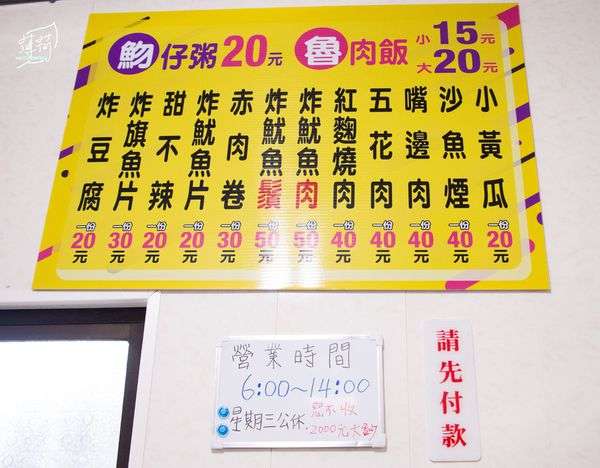 魩仔粥20元 魯肉飯 小15元 大20元
炸豆腐 一份20元
炸旗魚片 一份30元
甜不辣 一份20元
炸魷魚片 一份20元
赤肉卷 一份30元
炸魷魚鬚 一份50元
炸魷魚肉 一份50元
紅麴燒肉 一份40元
五花肉 一份40元
嘴邊肉 一份40元
沙魚煙 一份40元
小黃瓜 一份20元
營業時間
6:00~14:00
星期三公休
恕不收
2000元大鈔
請先付款